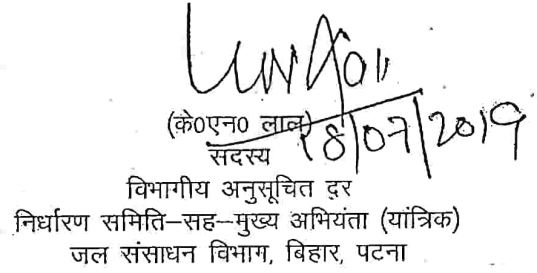 (के०एन० लाल)
सदस्य 18/07/2019
विभागीय अनुसूचित दर
निर्धारण समिति–सह–मुख्य अभियंता (यांत्रिक)
जल संसाधन विभाग, बिहार, पटना